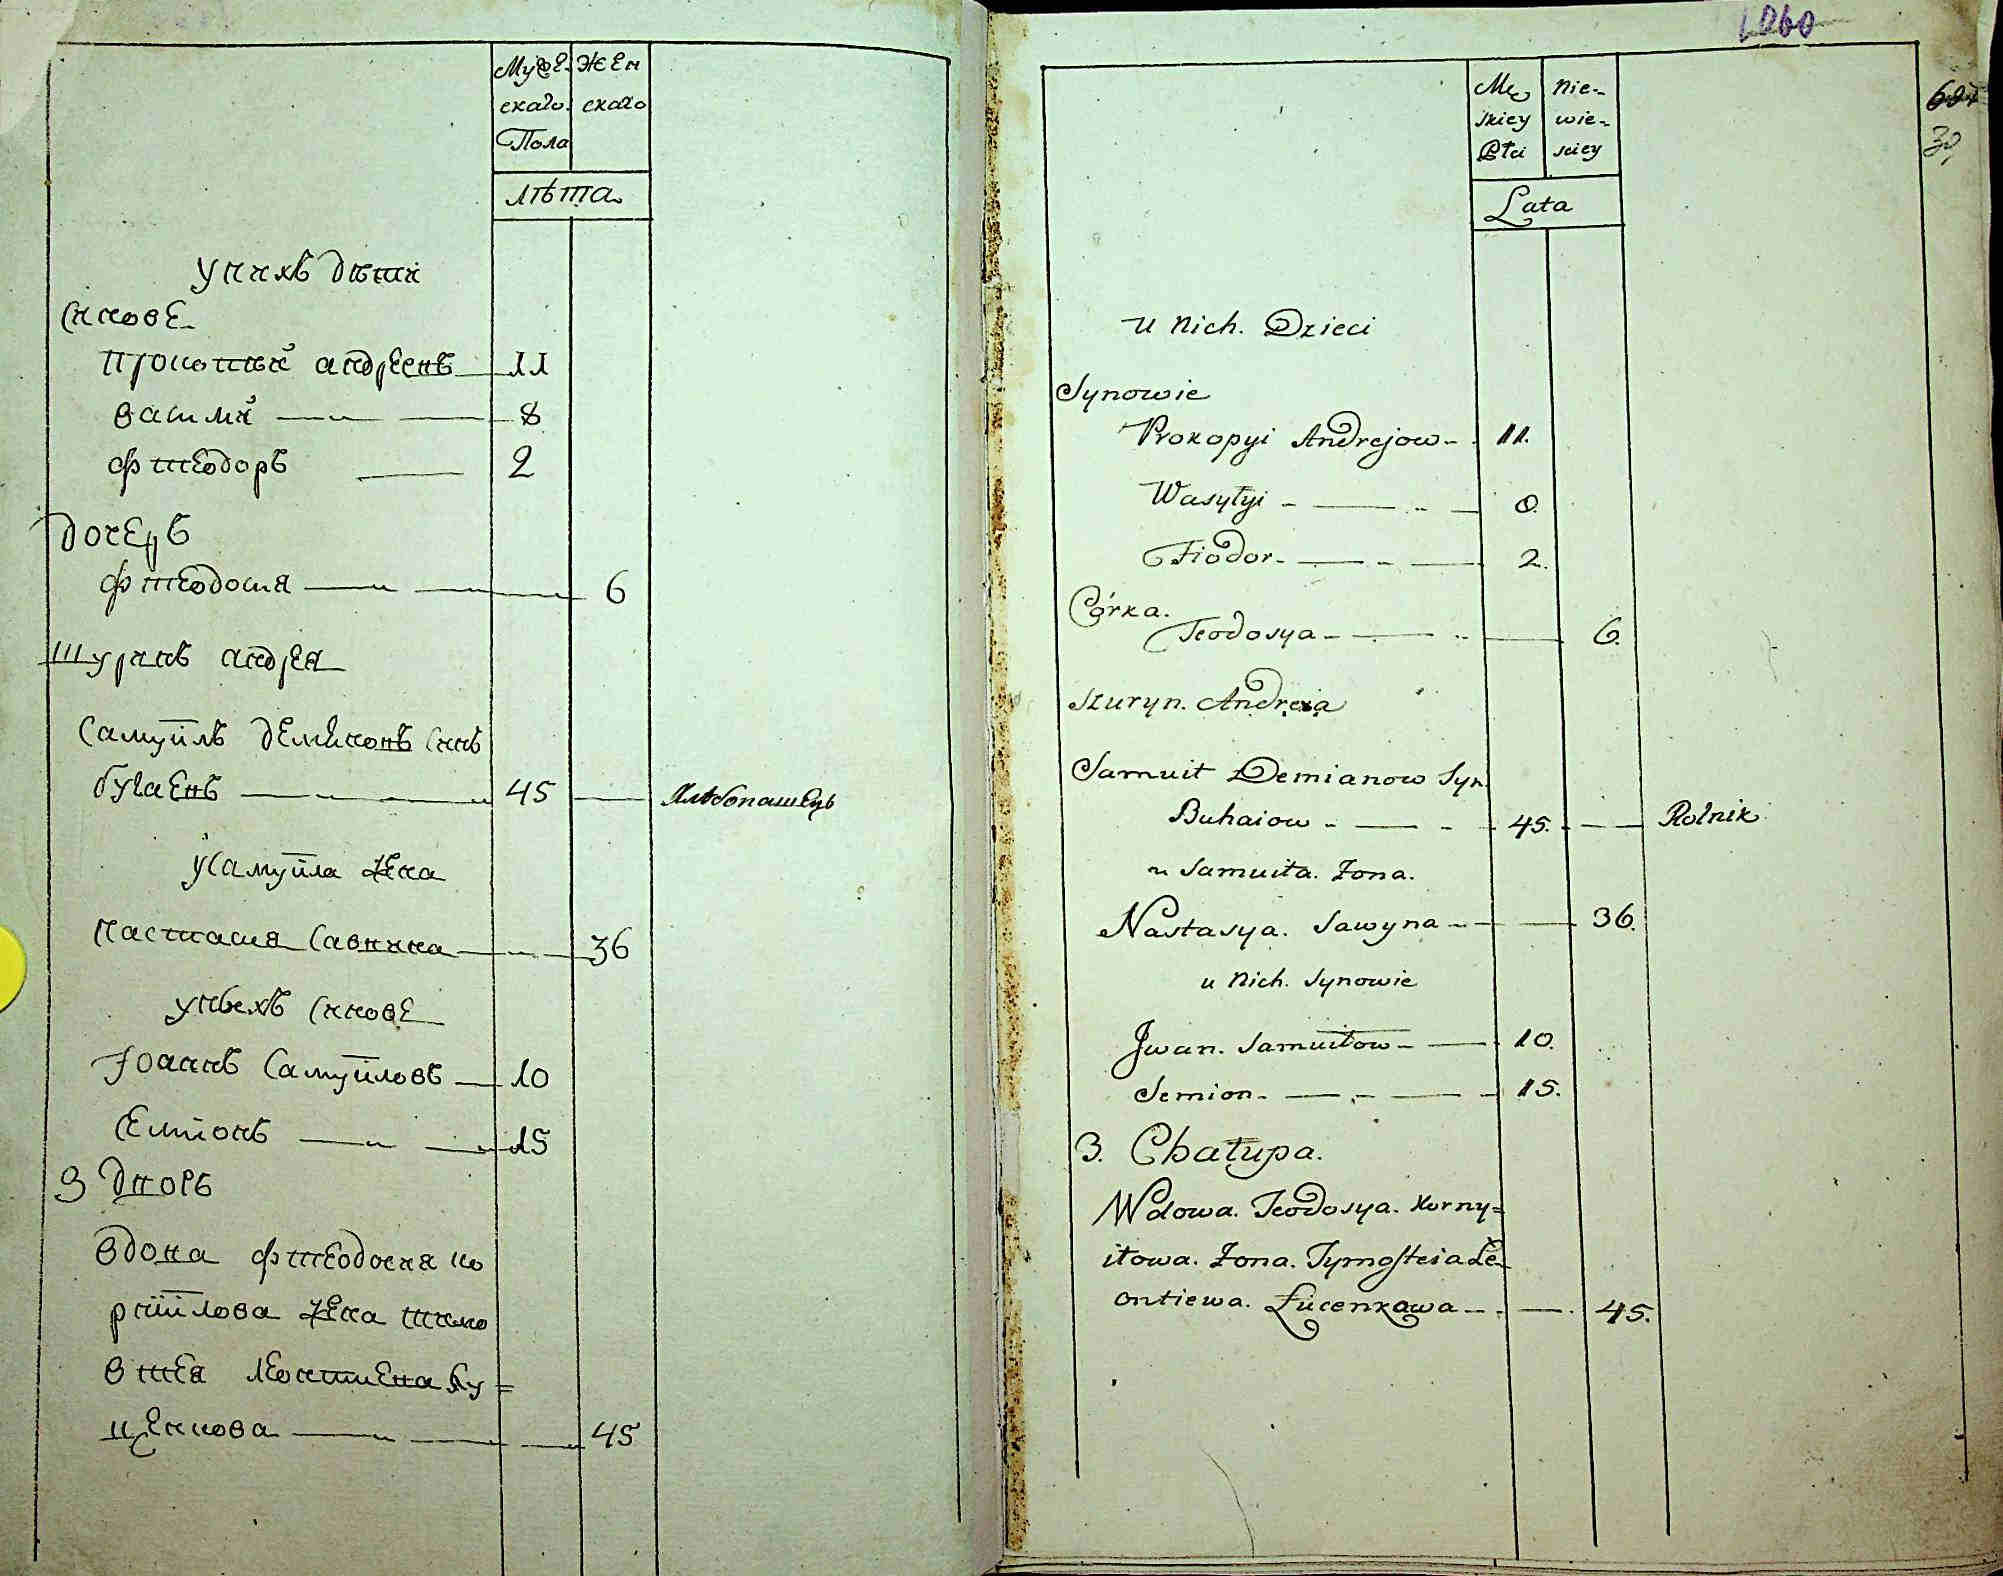 Мужес- Жен
скаго скаго
Пола
лѣта
у нихъ дѣти
Синове
Прокопий андреевъ 11
василий 8
фтеодоръ 2
дочерь
фтеодосия 6
Шуринъ андрея
Самуйлъ демяновъ синъ
бугаевъ 45 Хлѣбопашецъ
у самуйла жена
Настасия Савина 36
у нихъ синове
Іоаннъ Самуйловъ 10
Семіонъ 15
3 дворъ
вдова фтеодосия ко
рнійлова жена тимо
втея леонтиева лу=
ценкова 45
1060
Mę nie-
skiey wie-
Płci sciey
Lata
30
u nich. Dzieci
Synowie
Prokopyi Andrejow 11.
Wasyłyi 8.
Fiodor 2.
Córka.
Teodosya 6.
szuryn. Andreia
Samuił Demianow Syn
Buhaiow 45. Rolnik
u Samuiła. Żona.
Nastasya. Sawyna 36.
u nich. Synowie
Jwan. Samuiłow 10.
Semion 15.
3. Chałupa.
Wdowa. Teodosya. Korny=
iłowa. Żona. Tymofteia Le-
ontiewa. Łucenkawa 45.